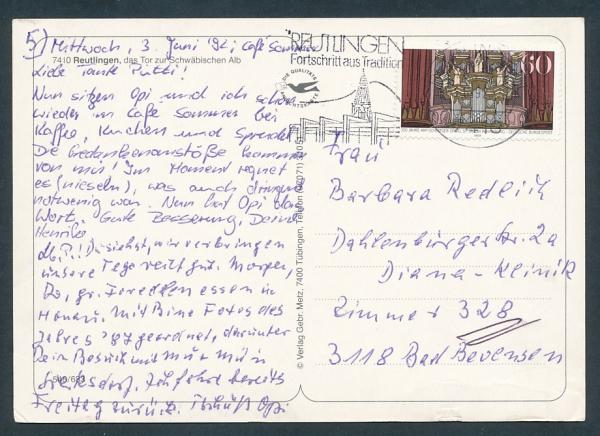 5) Mittwoch, 3. Juni '92; Café Sommer
7410 Reutlingen, das Tor zur Schwäbischen Alb
Liebe Tante Putti!
Nun sitzen Opi und ich schon
wieder im Café Sommer bei
Kaffee, Kuchen und Sprudel.
Die Gedankenanstöße kommen
von mir! Im Moment regnet
es (nieseln), was auch dringend
notwenig war. Nun hat Opi das
Wort. Gute Besserung, Deine
Henrike
L. P.! Du siehst, wir verbringen
unsere Tage recht gut. Morgen,
Do, gr. Forellenessen in
Honau. Mit Bine Fotos des
Jahres '87 geordnet, darunter
Dein Besuch mit mir in
Freitag zurück. Tschüß Opi
Ich fahre bereits
REUTLINGEN
Fortschritt aus Tradition
60
DEUTSCHE BUNDESPOST
© Verlag Gebr. Metz, 7400 Tübingen, Telefon
Frau
Barbara Redlich
Dahlenburger Str. 2a
Diana-Klinik
Zimmer 328
3118 Bad Bevensen